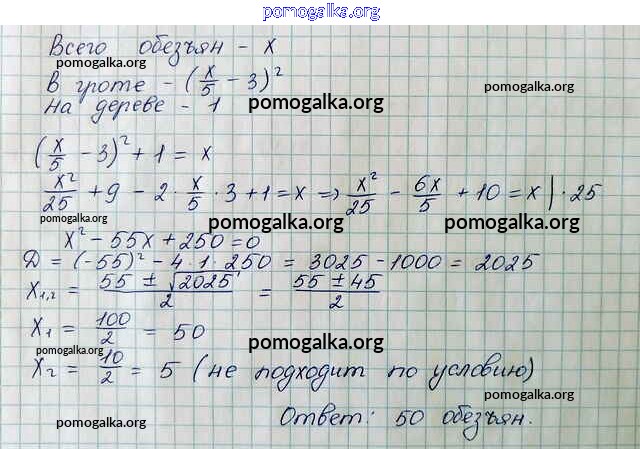 pomogalka.org
Всего обезъян - x
pomogalka.org
В гроте - (x/5 - 3)²
pomogalka.org
на дереве - 1
pomogalka.org
(x/5 - 3)² + 1 = x
x²/25 + 9 - 2 · x/5 · 3 + 1 = x => x²/25 - 6x/5 + 10 = x | · 25
pomogalka.org
pomogalka.org
pomogalka.org
x² - 55x + 250 = 0
Д = (-55)² - 4 · 1 · 250 = 3025 - 1000 = 2025
x₁,₂ = (55 ± √2025)/2 = (55 ± 45)/2
x₁ = 100/2 = 50
pomogalka.org
pomogalka.org
x₂ = 10/2 = 5 (не подходит по условию)
pomogalka.org
Ответ: 50 обезъян.
pomogalka.org
pomogalka.org